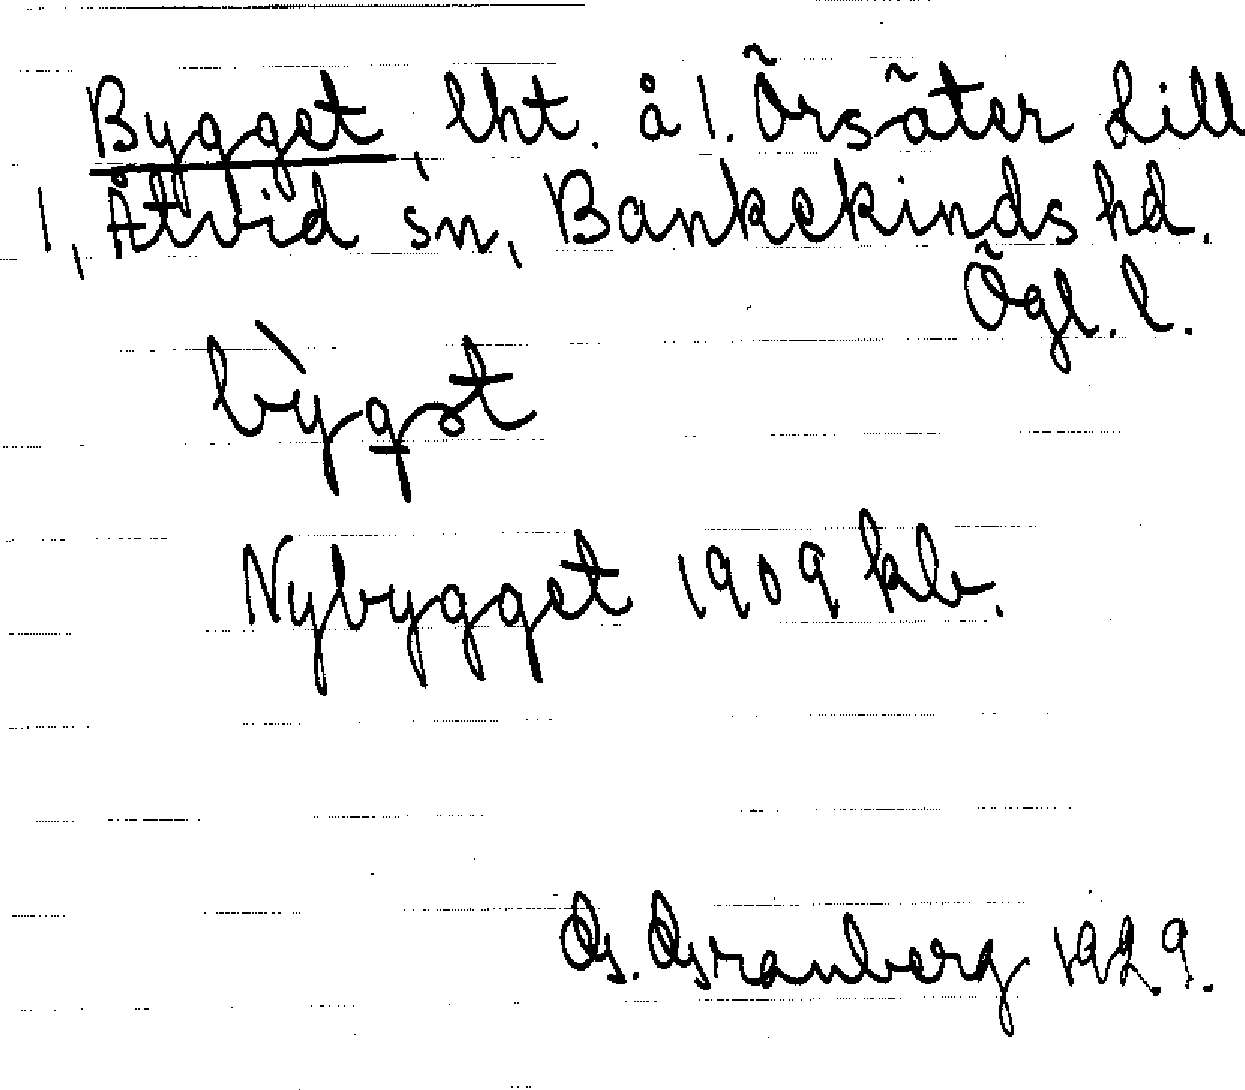 Bygget, lht. å 1. Örsäter Lill
1, Åtvid sn, Bankekinds hd.
Ögl. l.
bỳgət
Nybygget 1909 kb.
G. Granberg 1929.